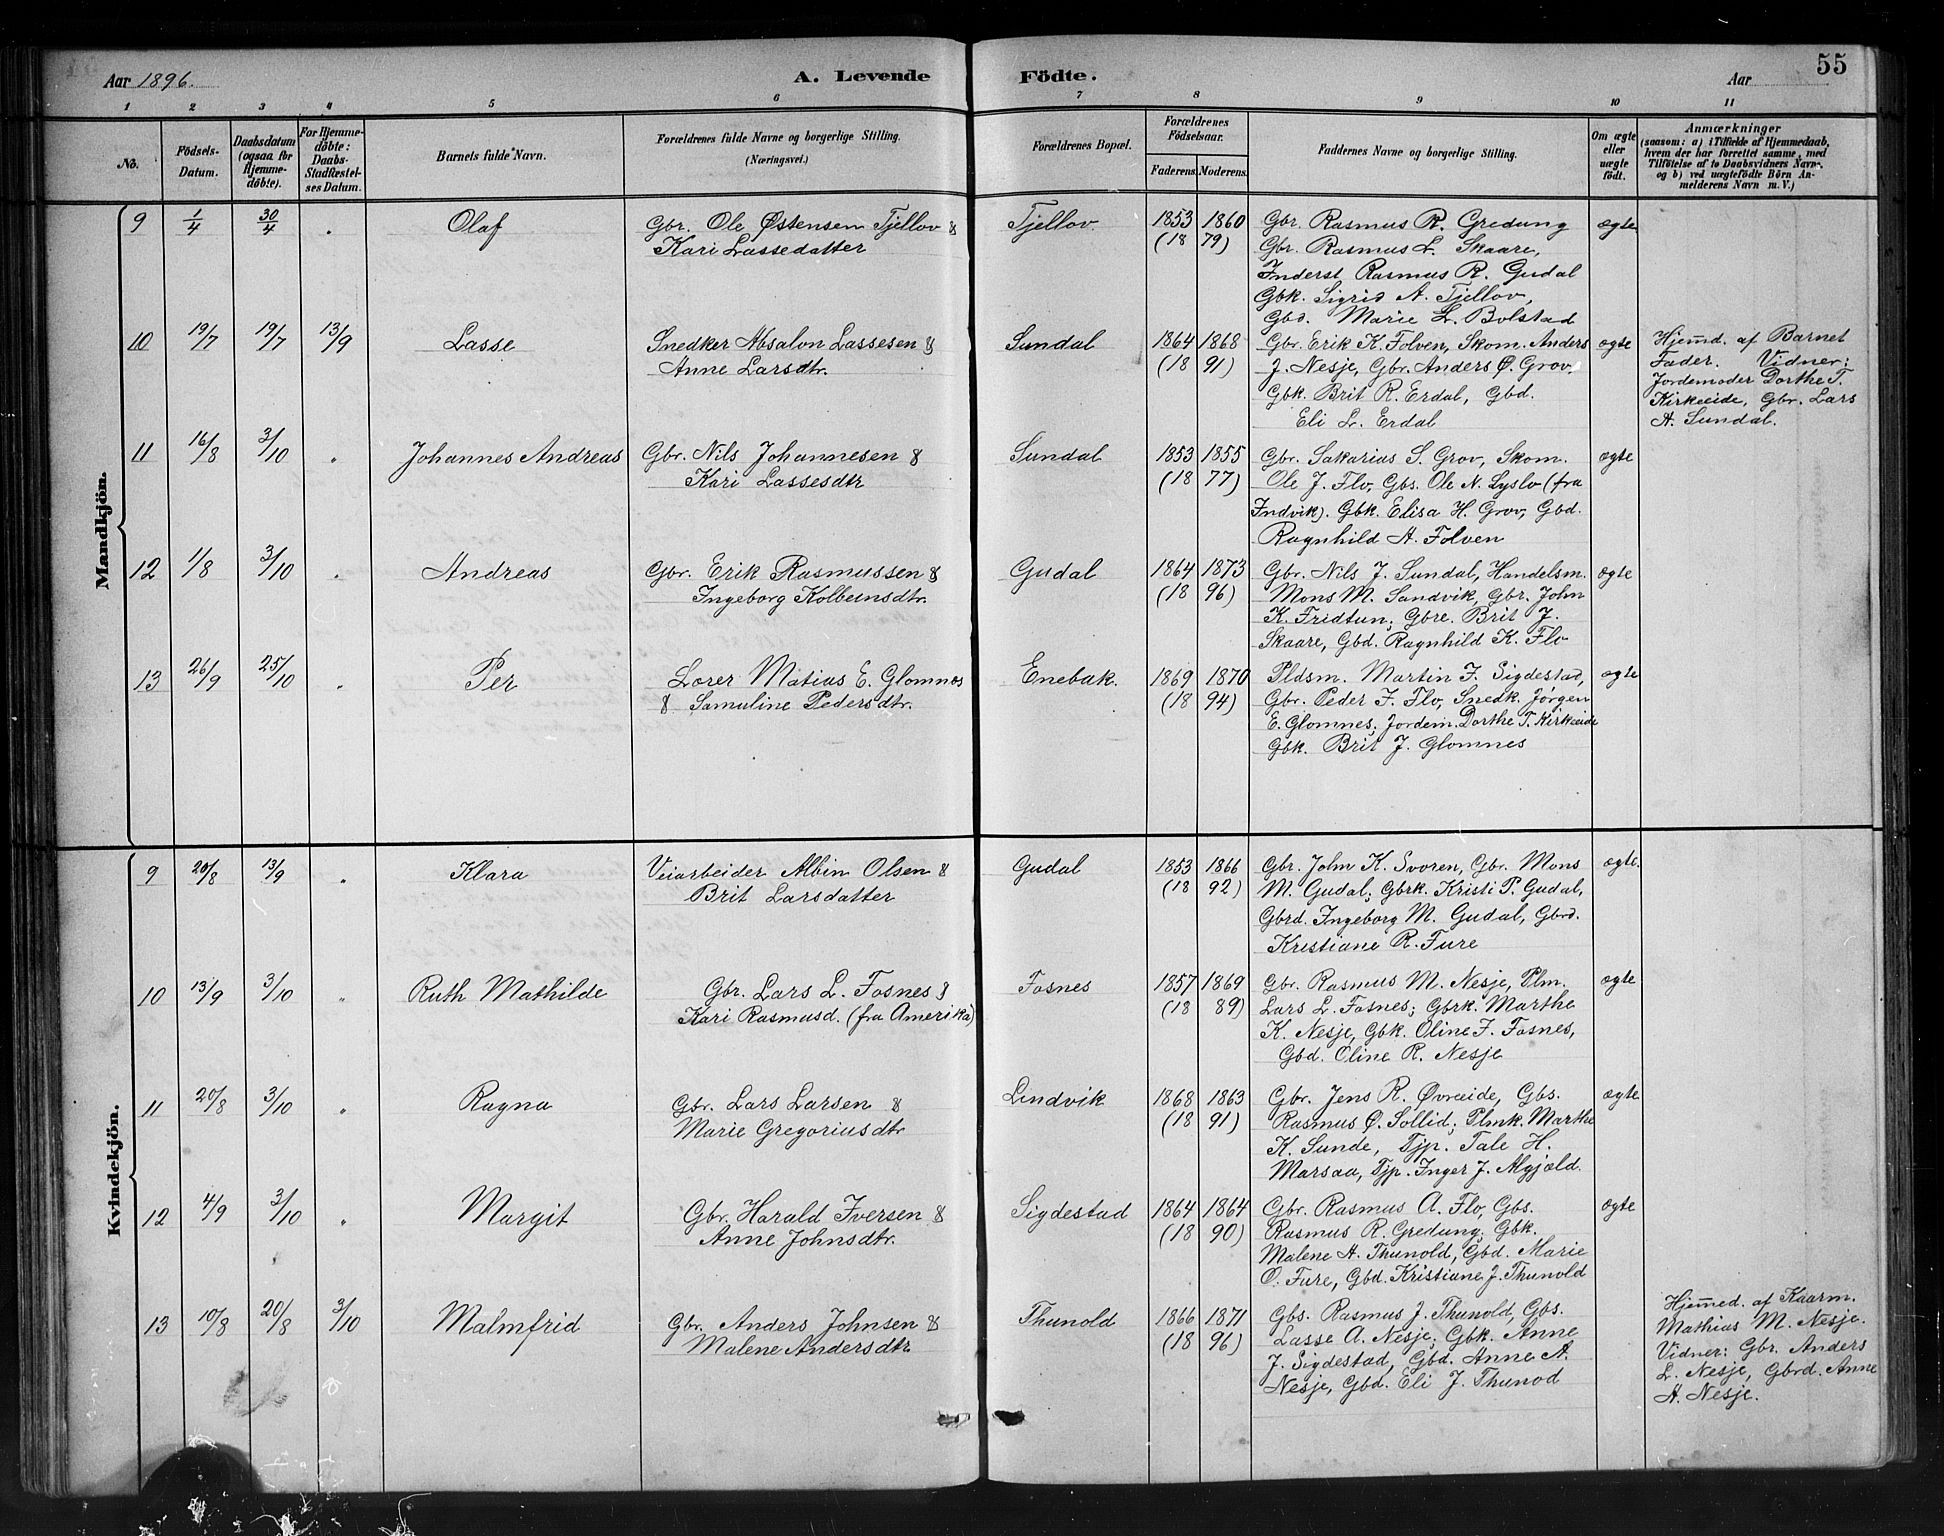 Aar 1896. A. Levende Födte. Aar 55
1 2 3 4 5 6 7 8 9 10 11
No.
Födsels-Datum.
Daabsdatum (ogsaa for Hjemme-döbte).
For Hjemme-döbte: Daabs-Stadfæstel-ses Datum.
Barnets fulde Navn.
Forældrenes fulde Navne og borgerlige Stilling. (Næringsvei.)
Forældrenes Bopæl.
Forældrenes Födselsaar.
Faderens. Moderens.
Faddernes Navne og borgerlige Stilling.
Om ægte eller uægte födt.
Anmærkninger
(saasom: a) i Tilfælde af Hjemmedaab,
hvem der har forrettet samme, med
Tilföielse af to Daabsvidners Navn-,
og b) ved uægtefödte Börn An-
melderens Navn m. V.)
Mandkjön.
9 1/4 30/4 " Olaf Gbr. Ole Østensen Tjellov & Tjellov. 1853 1860 Gbr. Rasmus R. Gredung ægte
Kari Lassedatter (18 79) Gbr. Rasmus L. Skaare,
Inderst Rasmus R. Gudal
Gbk. Sigrid A. Tjellov,
Gbd. Marie L. Bolstad
10 19/7 19/7 13/9 Lasse Snedker Absalon Lassesen & Sundal 1864 1868 Gbr. Erik K. Folven, Skom. Anders ægte Hjemd. af Barnet
Anne Larsdtr. (18 91) J. Nesje, Gbr. Anders Ø. Grov. Fader. Vidner:
Gbk. Brit R. Erdal, Gbd. Jordemoder Dorthe T.
Eli L. Erdal Kirkeeide, Gbr. Lars
A. Sundal.
11 16/8 3/10 " Johannes Andreas Gbr. Nils Johannesen & Sundal 1853 1855 Gbr. Sakarius S. Grov, Skom. ægte
Kari Lassesdtr (18 77) Ole J. Flo, Gbs. Ole N. Lyslo (fra
Indvik). Gbk. Elisa H. Grov, Gbd.
Ragnhild A. Folven
12 1/8 3/10 " Andreas Gbr. Erik Rasmussen & Gudal 1864 1873 Gbr. Nils J. Sundal, Handelsm. ægte
Ingeborg Kolbeinsdtr. (18 96) Mons M. Sandvik, Gbr. John
K. Fridtun; Gbre. Brit J.
Skaare, Gbd. Ragnhild K. Flo
13 26/9 25/10 " Per Lærer Matius E. Glomnes Enebak. 1869 1870 Pldsm. Martin F. Sigdestad, ægte
& Samuline Pedersdtr. (18 94) Gbr. Peder F. Flo, Snedk. Jørgen
E. Glomnes; Jordem. Dorthe T. Kirkeeide
Gbk. Brit J. Glomnes
Kvindekjön.
9 20/8 13/9 " Klara Veiarbeider Albin Olsen & Gudal 1853 1866 Gbr. John K. Svoren, Gbr. Mons ægte.
Brit Larsdatter (18 92) M. Gudal; Gbrk. Kristi P. Gudal,
Gbrd. Ingeborg M. Gudal, Gbrd.
Kristiane R. Fure
10 13/9 3/10 " Ruth Mathilde Gbr. Lars L. Fosnes & Fosnes 1857 1869 Gbr. Rasmus M. Nesje, Plm. ægte
Kari Rasmusd. (fra Amerika) (18 89) Lars L. Fosnes; Gbrk. Marthe
K. Nesje, Gbk. Oline F. Fosnes,
Gbd. Oline R. Nesje
11 20/8 3/10 " Ragna Gbr. Lars Larsen & Lindvik 1868 1863 Gbr. Jens R. Øvreeide, Gbs. ægte
Marie Gregoriusdtr (18 91) Rasmus Ø. Sollid; Plmk. Marthe
K. Sunde, Tjp. Tale H.
Marsaa, Tjp. Inger J. Mgjæld.
12 4/9 3/10 " Margit Gbr. Harald Iversen & Sigdestad 1864 1864 Gbr. Rasmus A. Flo, Gbs. ægte
Anne Johnsdtr. (18 90) Rasmus R. Gredung; Gbk.
Malene A. Thunold, Gbd. Marie
O. Fure, Gbd. Kristiane J. Thunold
13 10/8 20/8 3/10 Malmfrid Gbr. Anders Johnsen & Thunold 1866 1871 Gbs. Rasmus J. Thunold, Gbs. Hjemmed. af Kaarm.
Malene Andersdtr. (18 96) Lasse A. Nesje; Gbk. Anne Mathias M. Nesje.
J. Sigdestad, Gbd. Anne A. Vidner: Gbr. Anders
Nesje, Gbd. Eli J. Thunod L. Nesje, Gbrd. Anne
A. Nesje.